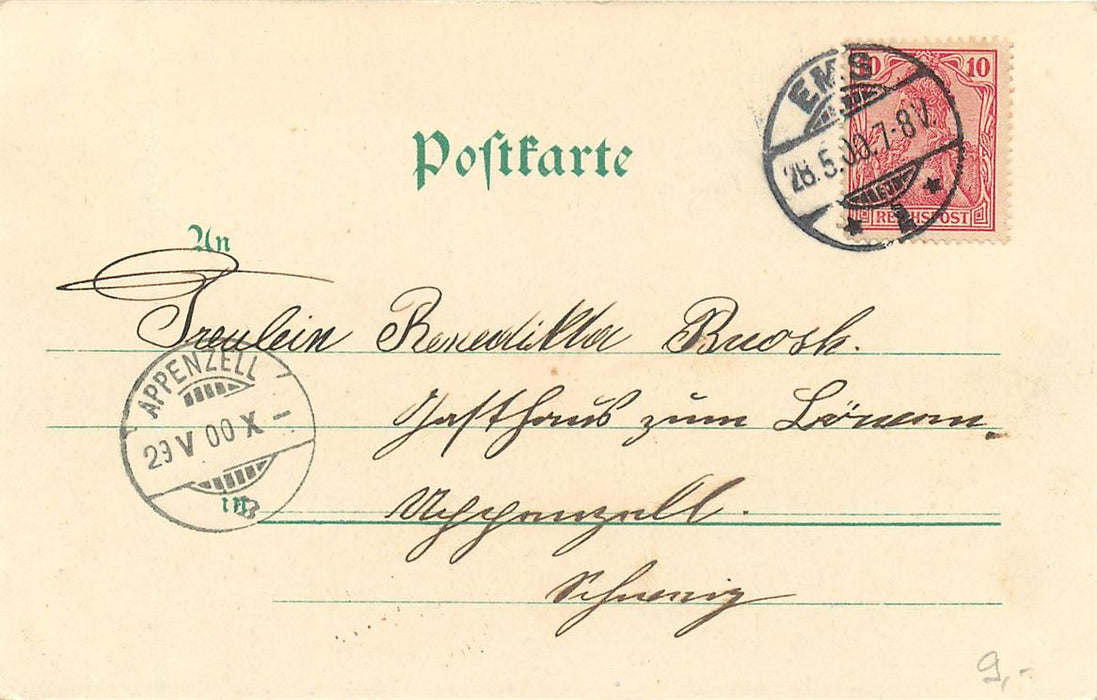 Postkarte
10 10
REICHSPOST
EMS
28.5.00.7-8V.
An
Freulein Benedikta Broßk.
APPENZELL
29 V 00 X -
Gasthaus zum Löwen.
in
Appenzell.
Schweiz
9,-